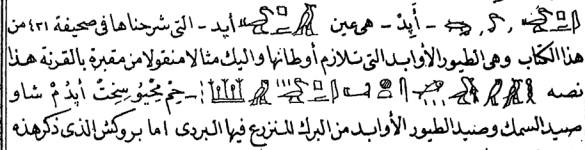 – أَپِدْ – هى عين أيد – التى شرحناها فى صحيفة ٤٣١ من
هذا الكتاب وهى الطيور الأوابد التى تلازم أوطانها واليك مثالا منقولا من مقبرة بالقرنة هذا
نصه – حِمْ مِحْيُو سِخِتْ أپِدُمْ شاو
صيد السمك وصيد الطيور الأوابد من البرك للنزرع فيها البردى اما بروكش الذى ذكر هذه